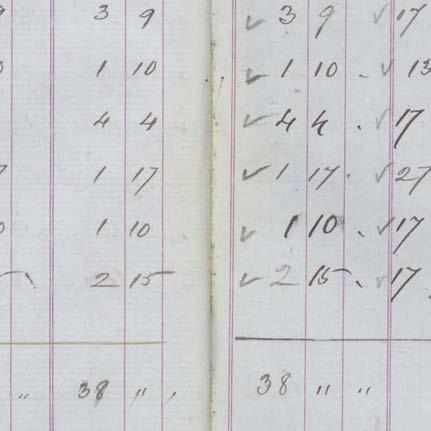 3 9 ✓ 3 9 ✓ 17
1 10 ✓ 1 10 - ✓ 13
4 4 ✓ 4 4 . ✓ 17
1 17 ✓ 1 17 . ✓ 27
1 10 ✓ 1 10 . ✓ 17
2 15 ✓ 2 15 . ✓ 17
" 38 " , 38 " "